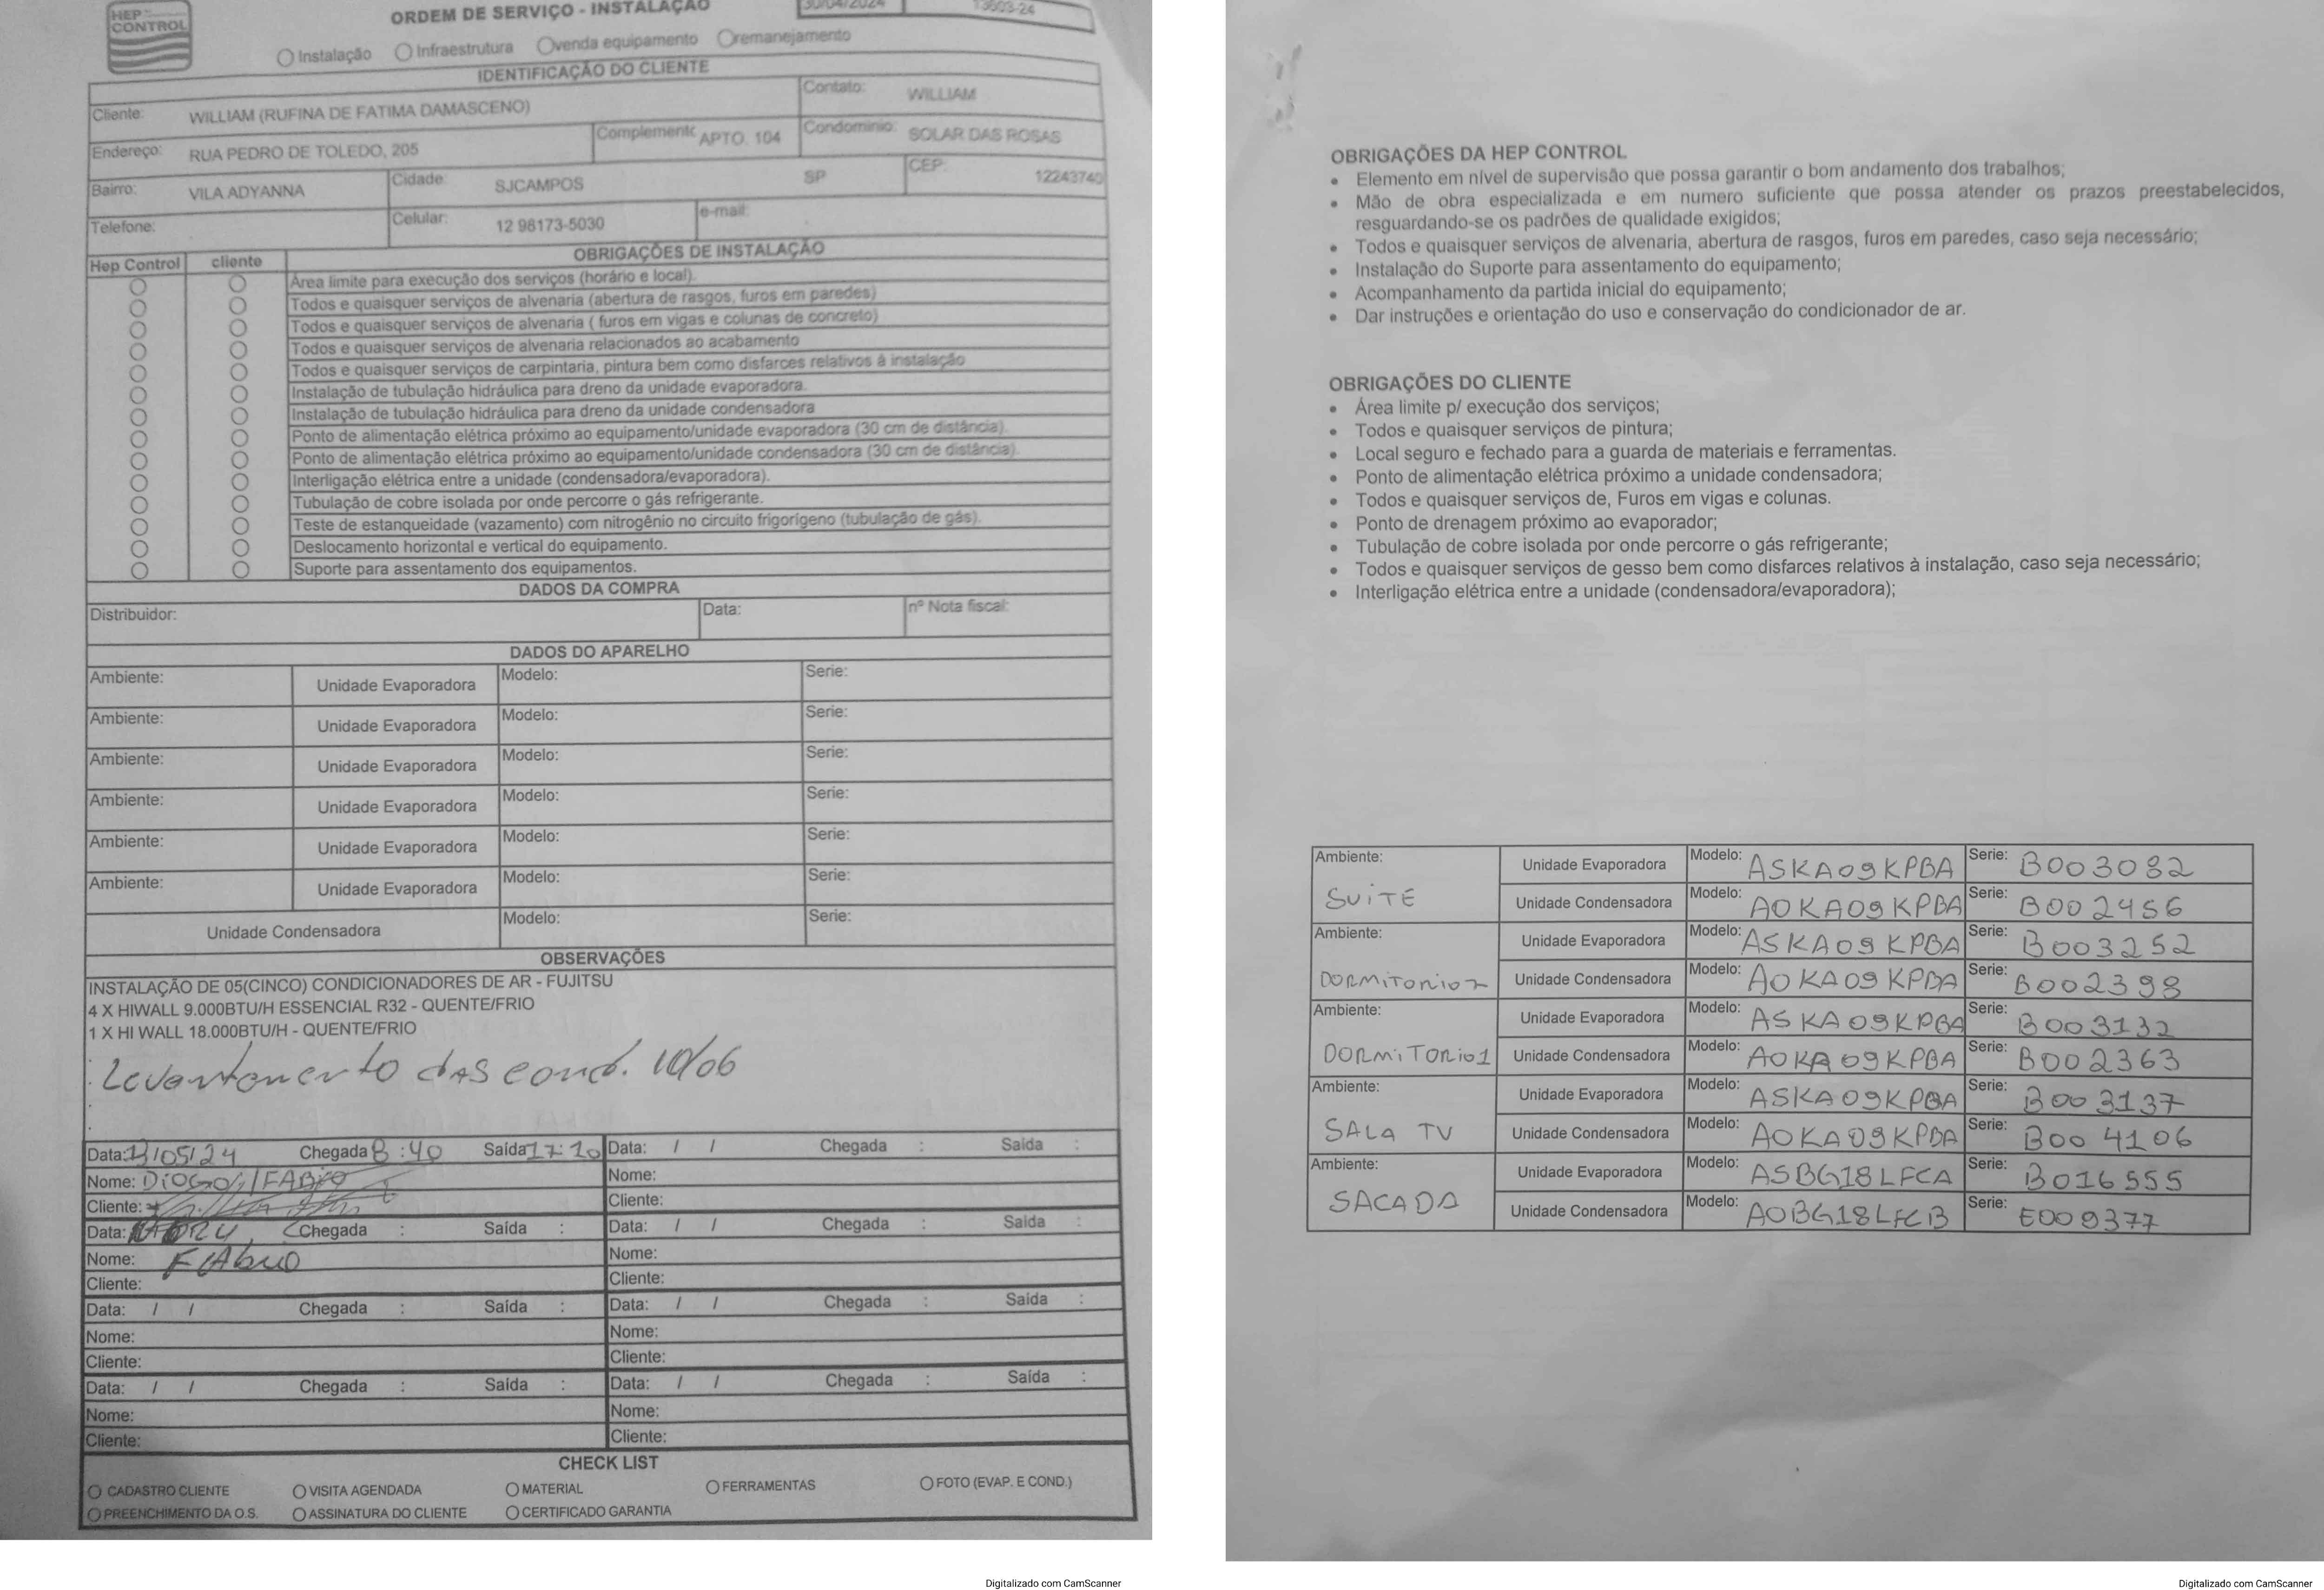 HEP
CONTROL
ORDEM DE SERVIÇO - INSTALAÇÃO
30/04/2024
13603-24
Instalação Infraestrutura venda equipamento remanejamento
IDENTIFICAÇÃO DO CLIENTE
Cliente: WILLIAM (RUFINA DE FATIMA DAMASCENO) Contato: WILLIAM
Endereço: RUA PEDRO DE TOLEDO, 205 Complemento APTO. 104 Condominio: SOLAR DAS ROSAS
Bairro: VILA ADYANNA Cidade: SJCAMPOS SP CEP: 12243740
Telefone: Celular: 12 98173-5030 e-mail:
Hep Control cliente OBRIGAÇÕES DE INSTALAÇÃO
Área limite para execução dos serviços (horário e local).
Todos e quaisquer serviços de alvenaria (abertura de rasgos, furos em paredes)
Todos e quaisquer serviços de alvenaria ( furos em vigas e colunas de concreto)
Todos e quaisquer serviços de alvenaria relacionados ao acabamento
Todos e quaisquer serviços de carpintaria, pintura bem como disfarces relativos à instalação
Instalação de tubulação hidráulica para dreno da unidade evaporadora.
Instalação de tubulação hidráulica para dreno da unidade condensadora
Ponto de alimentação elétrica próximo ao equipamento/unidade evaporadora (30 cm de distância).
Ponto de alimentação elétrica próximo ao equipamento/unidade condensadora (30 cm de distância).
Interligação elétrica entre a unidade (condensadora/evaporadora).
Tubulação de cobre isolada por onde percorre o gás refrigerante.
Teste de estanqueidade (vazamento) com nitrogênio no circuito frigorígeno (tubulação de gás).
Deslocamento horizontal e vertical do equipamento.
Suporte para assentamento dos equipamentos.
DADOS DA COMPRA
Distribuidor: Data: nº Nota fiscal:
DADOS DO APARELHO
Ambiente: Unidade Evaporadora Modelo: Serie:
Ambiente: Unidade Evaporadora Modelo: Serie:
Ambiente: Unidade Evaporadora Modelo: Serie:
Ambiente: Unidade Evaporadora Modelo: Serie:
Ambiente: Unidade Evaporadora Modelo: Serie:
Ambiente: Unidade Evaporadora Modelo: Serie:
Unidade Condensadora Modelo: Serie:
OBSERVAÇÕES
INSTALAÇÃO DE 05(CINCO) CONDICIONADORES DE AR - FUJITSU
4 X HIWALL 9.000BTU/H ESSENCIAL R32 - QUENTE/FRIO
1 X HI WALL 18.000BTU/H - QUENTE/FRIO
Levantamento das cond. 10/06
Data: 13/05/24 Chegada 8:40 Saída 17:20 Data: / / Chegada : Saída :
Nome: DIOGO/FABIO Nome:
Cliente: Cliente:
Data: Chegada : Saída : Data: / / Chegada : Saída :
Nome: FABIO Nome:
Cliente: Cliente:
Data: / / Chegada : Saída : Data: / / Chegada : Saída :
Nome: Nome:
Cliente: Cliente:
Data: / / Chegada : Saída : Data: / / Chegada : Saída :
Nome: Nome:
Cliente: Cliente:
CHECK LIST
CADASTRO CLIENTE VISITA AGENDADA MATERIAL FERRAMENTAS FOTO (EVAP. E COND.)
PREENCHIMENTO DA O.S. ASSINATURA DO CLIENTE CERTIFICADO GARANTIA
Digitalizado com CamScanner
OBRIGAÇÕES DA HEP CONTROL
• Elemento em nível de supervisão que possa garantir o bom andamento dos trabalhos;
• Mão de obra especializada e em numero suficiente que possa atender os prazos preestabelecidos,
resguardando-se os padrões de qualidade exigidos;
• Todos e quaisquer serviços de alvenaria, abertura de rasgos, furos em paredes, caso seja necessário;
• Instalação do Suporte para assentamento do equipamento;
• Acompanhamento da partida inicial do equipamento;
• Dar instruções e orientação do uso e conservação do condicionador de ar.
OBRIGAÇÕES DO CLIENTE
• Área limite p/ execução dos serviços;
• Todos e quaisquer serviços de pintura;
• Local seguro e fechado para a guarda de materiais e ferramentas.
• Ponto de alimentação elétrica próximo a unidade condensadora;
• Todos e quaisquer serviços de, Furos em vigas e colunas.
• Ponto de drenagem próximo ao evaporador;
• Tubulação de cobre isolada por onde percorre o gás refrigerante;
• Todos e quaisquer serviços de gesso bem como disfarces relativos à instalação, caso seja necessário;
• Interligação elétrica entre a unidade (condensadora/evaporadora);
Ambiente: SUITE Unidade Evaporadora Modelo: ASKA09KPBA Serie: B003082
Unidade Condensadora Modelo: AOKA09KPBA Serie: B002456
Ambiente: DORMITORIO 2 Unidade Evaporadora Modelo: ASKA09KPBA Serie: B003252
Unidade Condensadora Modelo: AOKA09KPBA Serie: B002398
Ambiente: DORMITORIO 1 Unidade Evaporadora Modelo: ASKA09KPBA Serie: B003132
Unidade Condensadora Modelo: AOKA09KPBA Serie: B002363
Ambiente: SALA TV Unidade Evaporadora Modelo: ASKA09KPBA Serie: B003137
Unidade Condensadora Modelo: AOKA09KPBA Serie: B004106
Ambiente: SACADA Unidade Evaporadora Modelo: ASBG18LFCA Serie: B016555
Unidade Condensadora Modelo: AOBG18LFCB Serie: E009377
Digitalizado com CamScanner